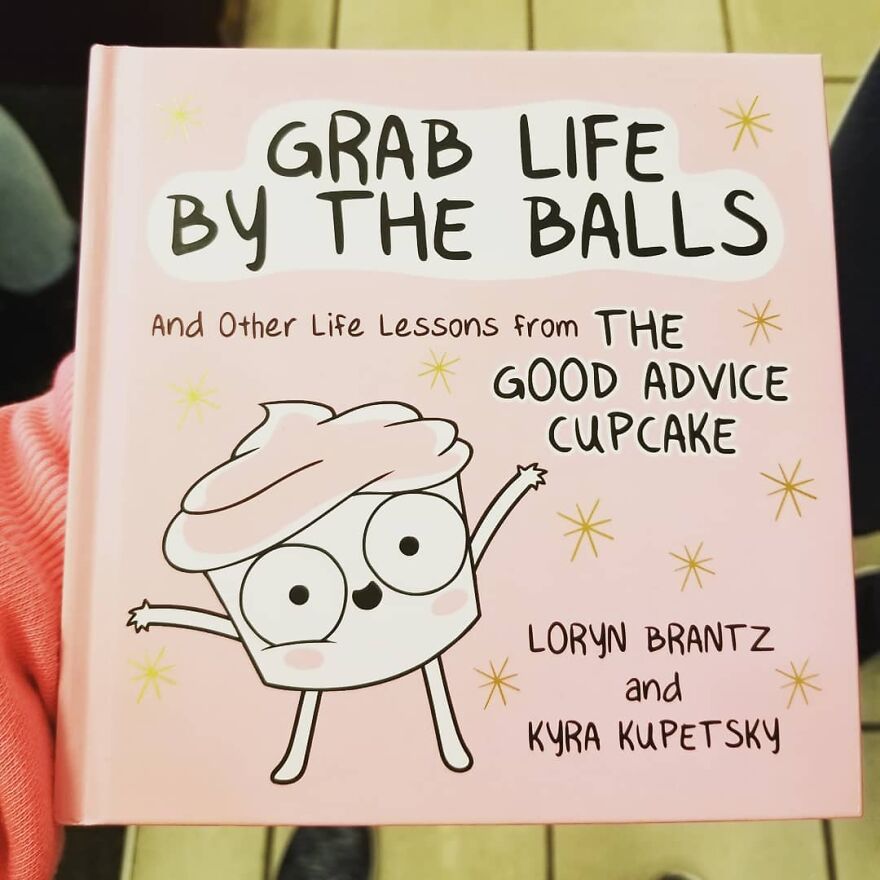 GRAB LIFE
BY THE BALLS
And Other Life Lessons from THE
GOOD ADVICE
CUPCAKE
LORYN BRANTZ
and
KYRA KUPETSKY